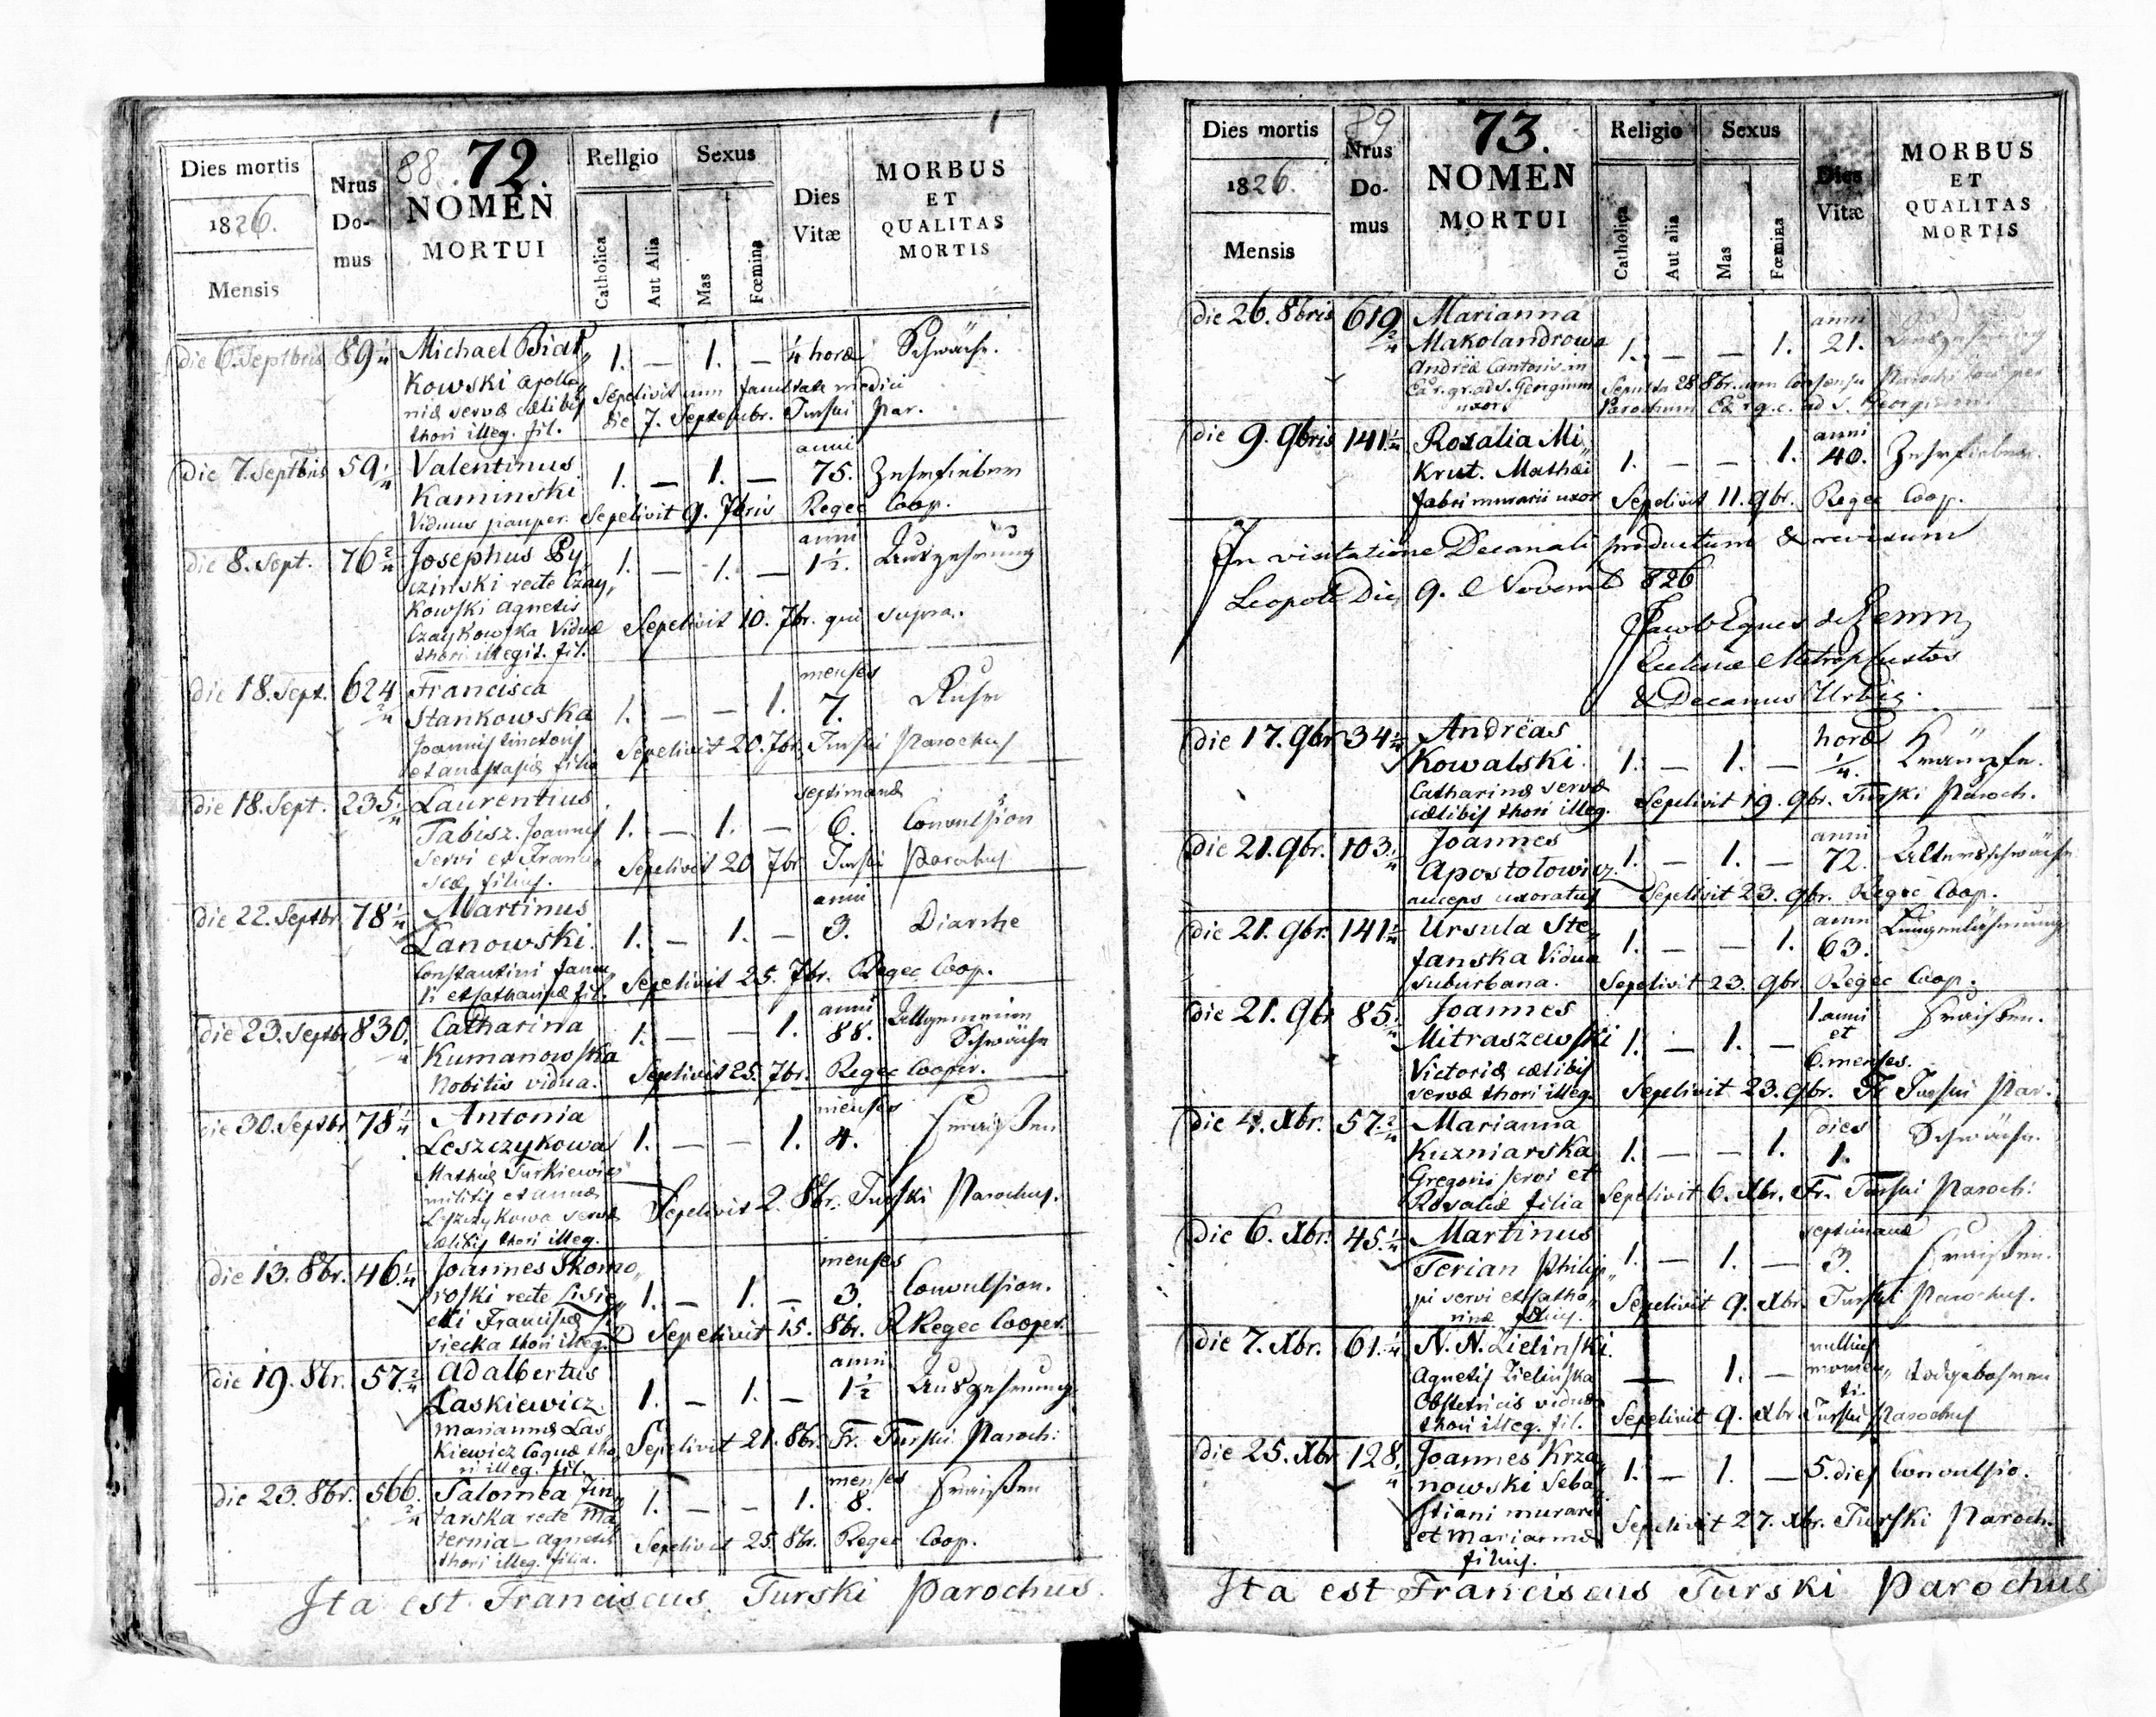 88. 72.
Dies mortis
1826.
Mensis
Nrus
Do-
mus
NOMEN
MORTUI
Religio
Catholica
Aut Alia
Sexus
Mas
Fœmina
Dies
Vitæ
MORBUS
ET
QUALITAS
MORTIS
die 6. Septbris 89 1/4 Michael Biał„ 1. — 1. — ¼ horæ Schwäche.
kowski Apollo„
niæ servæ cælibis Sepelivit cum facultate medici
thori illeg. fil. die 7. Septembr. Turski Par.
die 7. Septbris 59 1/4 Valentinus 1. — 1. — anni 75. Zehrfieber
Kaminski
Viduus pauper. Sepelivit 9. 7bris Regec Coop.
die 8. Sept. 76 2/4 Josephus 1. — 1. — anni 1½. Auszehrung
recte Czay„
kowski Agnetis
Czaykowska Viduæ Sepelivit 10. 7br. qui supra.
thori illegit. fil.
die 18. Sept. 624 2/4 Francisca 1. — — 1. menses 7. Ruhr
Stankowska
Joannis tinctoris Sepelivit 20. 7br. Turski Parochus
et Anastasiæ filia
die 18. Sept. 235 1/4 Laurentius 1. — 1. — septimanæ 6. Convulsion
Tabisz. Joannis
servi et Francis„ Sepelivit 20 7br. Turski Parochus
scæ filius.
die 22. Septbr. 78 1/4 Martinus 1. — 1. — anni 3. Diarrhe
Lanowski.
Constantini famu„ Sepelivit 25. 7br. Regec Coop.
li et Catharinæ fil.
die 23. Septbr 830. Catharina 1. — — 1. anni 88. Allgemeine
Kumanowska Schwäche
Nobilis vidua. Sepelivit 25. 7br. Regec Cooper.
die 30. Septbr. 78 1/4 Antonia 1. — — 1. menses 4. Fraißen
Leszczykowa
Mathiæ Turkiewicz
militis et Annæ Sepelivit 2. 8br. Turski Parochus.
Leszczykowa servæ
cælibis thori illeg.
die 13. 8br. 46 1/4 Joannes Skomo„ 1. — 1. — menses 3. Convulsion.
roski recte Lisie„
cki Franciscæ Li„
siecka thori illeg. Sepelivit 15. 8br. R Regec Cooper.
die 19. 8br. 57 2/4 Adalbertus 1. — 1. — anni 1½ Auszehrung.
Laskiewicz.
Mariannæ Las„
kiewicz Coquæ tho„ Sepelivit 21. 8br. Fr. Turski Paroch:
ri illeg. fil.
die 23. 8br. 566. 2/4 Salomea 1. — — 1. menses 8. Fraißen
tarska recte Ma„
ternia Agnetis Sepelivit 25. 8br. Regec Coop.
thori illeg. filia.
Ita est Franciscus Turski Parochus.
89 73.
Dies mortis
1826.
Mensis
Nrus
Do-
mus
NOMEN
MORTUI
Religio
Catholica
Aut alia
Sexus
Mas
Fœmina
Dies
Vitæ
MORBUS
ET
QUALITAS
MORTIS
die 26. 8bris 619 2/4 Marianna 1. — — 1. anni 21.
Makolandrowa
Andreæ Cantoris in
gr. ad S. Georgium Sepulta 28 8br. cum Consensu Parochi per
uxor Parochum ad S. Georgium
die 9. 9bris 141 1/4 Rozalia Mi„ 1. — — 1. anni 40. Zehrfieber.
krut. Mathæi
fabri murarii uxor Sepelivit 11. 9br. Regec Coop.
In visitatione Decanali productum & revisum
Leopoli Die 9. Novemb 826
Jacob Eques de
Metrop Custos
& Decanus Urbis.
die 17. 9br 34 1/4 Andreas 1. — 1. — horæ ¼. Krämpfe.
Kowalski.
Catharinæ servæ
cælibis thori illeg. Sepelivit 19. 9br. Turski Paroch.
die 21. 9br. 103. Joannes 1. — 1. — anni 72. Altersschwäche
Apostołowicz.
auceps uxoratus Sepelivit 23. 9br. Regec Coop.
die 21. 9br. 141 1/4 Ursula Ste„ 1. — — 1. anni 63. Lungenlähmung
fanska Vidua
suburbana. Sepelivit 23. 9br. Regec Coop.
die 21. 9br 85. Joannes 1. — 1. — 1 anni et 6. menses. Fraißen.
Mitraszewski
Victoriæ cælibis
servæ thori illeg. Sepelivit 23. 9br. Fr Turski Par.
die 4. Xbr. 57 2/4 Marianna 1. — — 1. dies 1. Schwäche.
Kuzniarska
Gregorii servi et
Rosaliæ filia Sepelivit 6. Xbr. Fr. Turski Paroch:
die 6. Xbr. 45 1/4 Martinus 1. — 1. — septimanæ 3. Fraißen.
Terian Philip„
pi servi et Catha„ Sepelivit 9. Xbr. Turski Parochus.
rinæ filius.
die 7. Xbr. 61 1/4 N. N. Zielinski. — 1. — nullius momen„ ti. todgebohren
Agnetis Zielinska
Obstetricis viduæ
thori illeg. fil. Sepelivit 9. Xbr. Turski Parochus
die 25. Xbr 128. Joannes Krza„ 1. — 1. — 5. dies Convulsio.
nowski Seba„
stiani murarii
et Mariannæ Sepelivit 27. Xbr. Turski Paroch.
filius.
Ita est Franciscus Turski Parochus